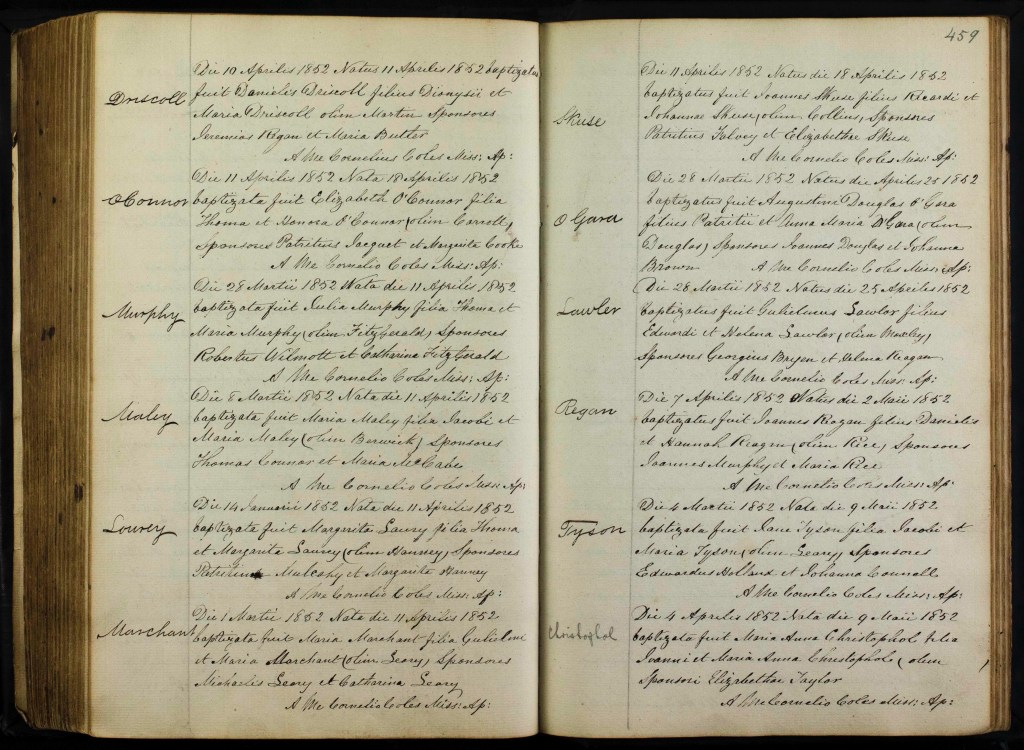 Driscoll
Die 10 Aprilis 1852 Natus 11 Aprilis 1852 baptizatus
fuit Danieles Driscoll filius Dionysii et
Maria Driscoll olim Martin Sponsores
Jeremias Regan et Maria Butler
A Me Cornelius Coles Miss: Ap:
O'Connor
Die 11 Aprilis 1852 Nata 18 Aprilis 1852
baptizata fuit Elizabeth O'Connor filia
Thoma et Honora O'Connor (olim Carroll,
Sponsores Patritius Jacquet et Margarita Cooke
A Me Cornelio Coles Miss: Ap:
Murphy
Die 28 Martii 1852 Nata die 11 Aprilis 1852
baptizata fuit Julia Murphy filia Thoma et
Maria Murphy (olim FitzGerald) Sponsores
Robertus Wilmott et Catharina FitzGerald
A Me Cornelio Coles Miss: Ap:
Maley
Die 8 Martii 1852 Nata die 11 Aprilis 1852
baptizata fuit Maria Maley filia Jacobi et
Maria Maley (olim Berwick) Sponsores
Thomas Connor et Maria McCabe
A Me Cornelio Coles Miss: Ap:
Lowrey
Die 14 Januarii 1852 Nata die 11 Aprilis 1852
baptizata fuit Margarita Laurey filia Thoma
et Margarita Laurey (olim Hanney) Sponsores
Mulcahy et Margarita Hanney
A Me Cornelio Coles Miss: Ap:
Marchant
Die 1 Martii 1852 Nata die 11 Aprilis 1852
baptizata fuit Maria Marchant filia Gulielmi
et Maria Marchant (olim Leary) Sponsores
Michaeles Leary et Catharina Leary
A Me Cornelio Coles Miss: Ap:
459
Skuse
Die 11 Aprilis 1852 Natus die 18 Aprilis 1852
baptizatus fuit Joannes Skuse filius Ricardi et
Johannae Skuse (olim Collins, Sponsores
Patritius Falvey et Elizabethae Skuse
A Me Cornelio Coles Miss: Ap:
O Gara
Die 28 Martii 1852 Natus die Aprilis 25 1852
baptizatus fuit Augustine Douglas O'Gara
filius Patritii et Anna Maria O'Gara (olim
Douglas) Sponsores Joannes Douglas et Johanna
Brown A Me Cornelio Coles Miss: Ap:
Lawler
Die 28 Martii 1852 Natus die 25 Aprilis 1852
baptizatus fuit Gulielmus Lawlor filius
Edwardi et Helena Lawlor (olim Moxley)
Sponsores Georgius Bryen et Helena Reagan
A Me Cornelio Coles Miss: Ap:
Regan
Die 7 Aprilis 1852 Natus die 2 Maii 1852
baptizatus fuit Joannes Reagan filius Danielis
et Hannah Reagan (olim Rice) Sponsores
Joannes Murphy et Maria Rice
A Me Cornelio Coles Miss: Ap:
Tyson
Die 4 Martii 1852 Nata die 9 Maii 1852
baptizata fuit Jane Tyson filia Jacobi et
Maria Tyson (olim Leary) Sponsores
Edwardus Holland et Johanna Connell
A Me Cornelio Coles Miss: Ap:
Christophol
Die 4 Aprilis 1852 Nata die 9 Maii 1852
baptizata fuit Maria Anna Christophole filia
Joanni et Maria Anna Christophole (olim
Sponsori Elizabethae Taylor
A Me Cornelio Coles Miss: Ap: